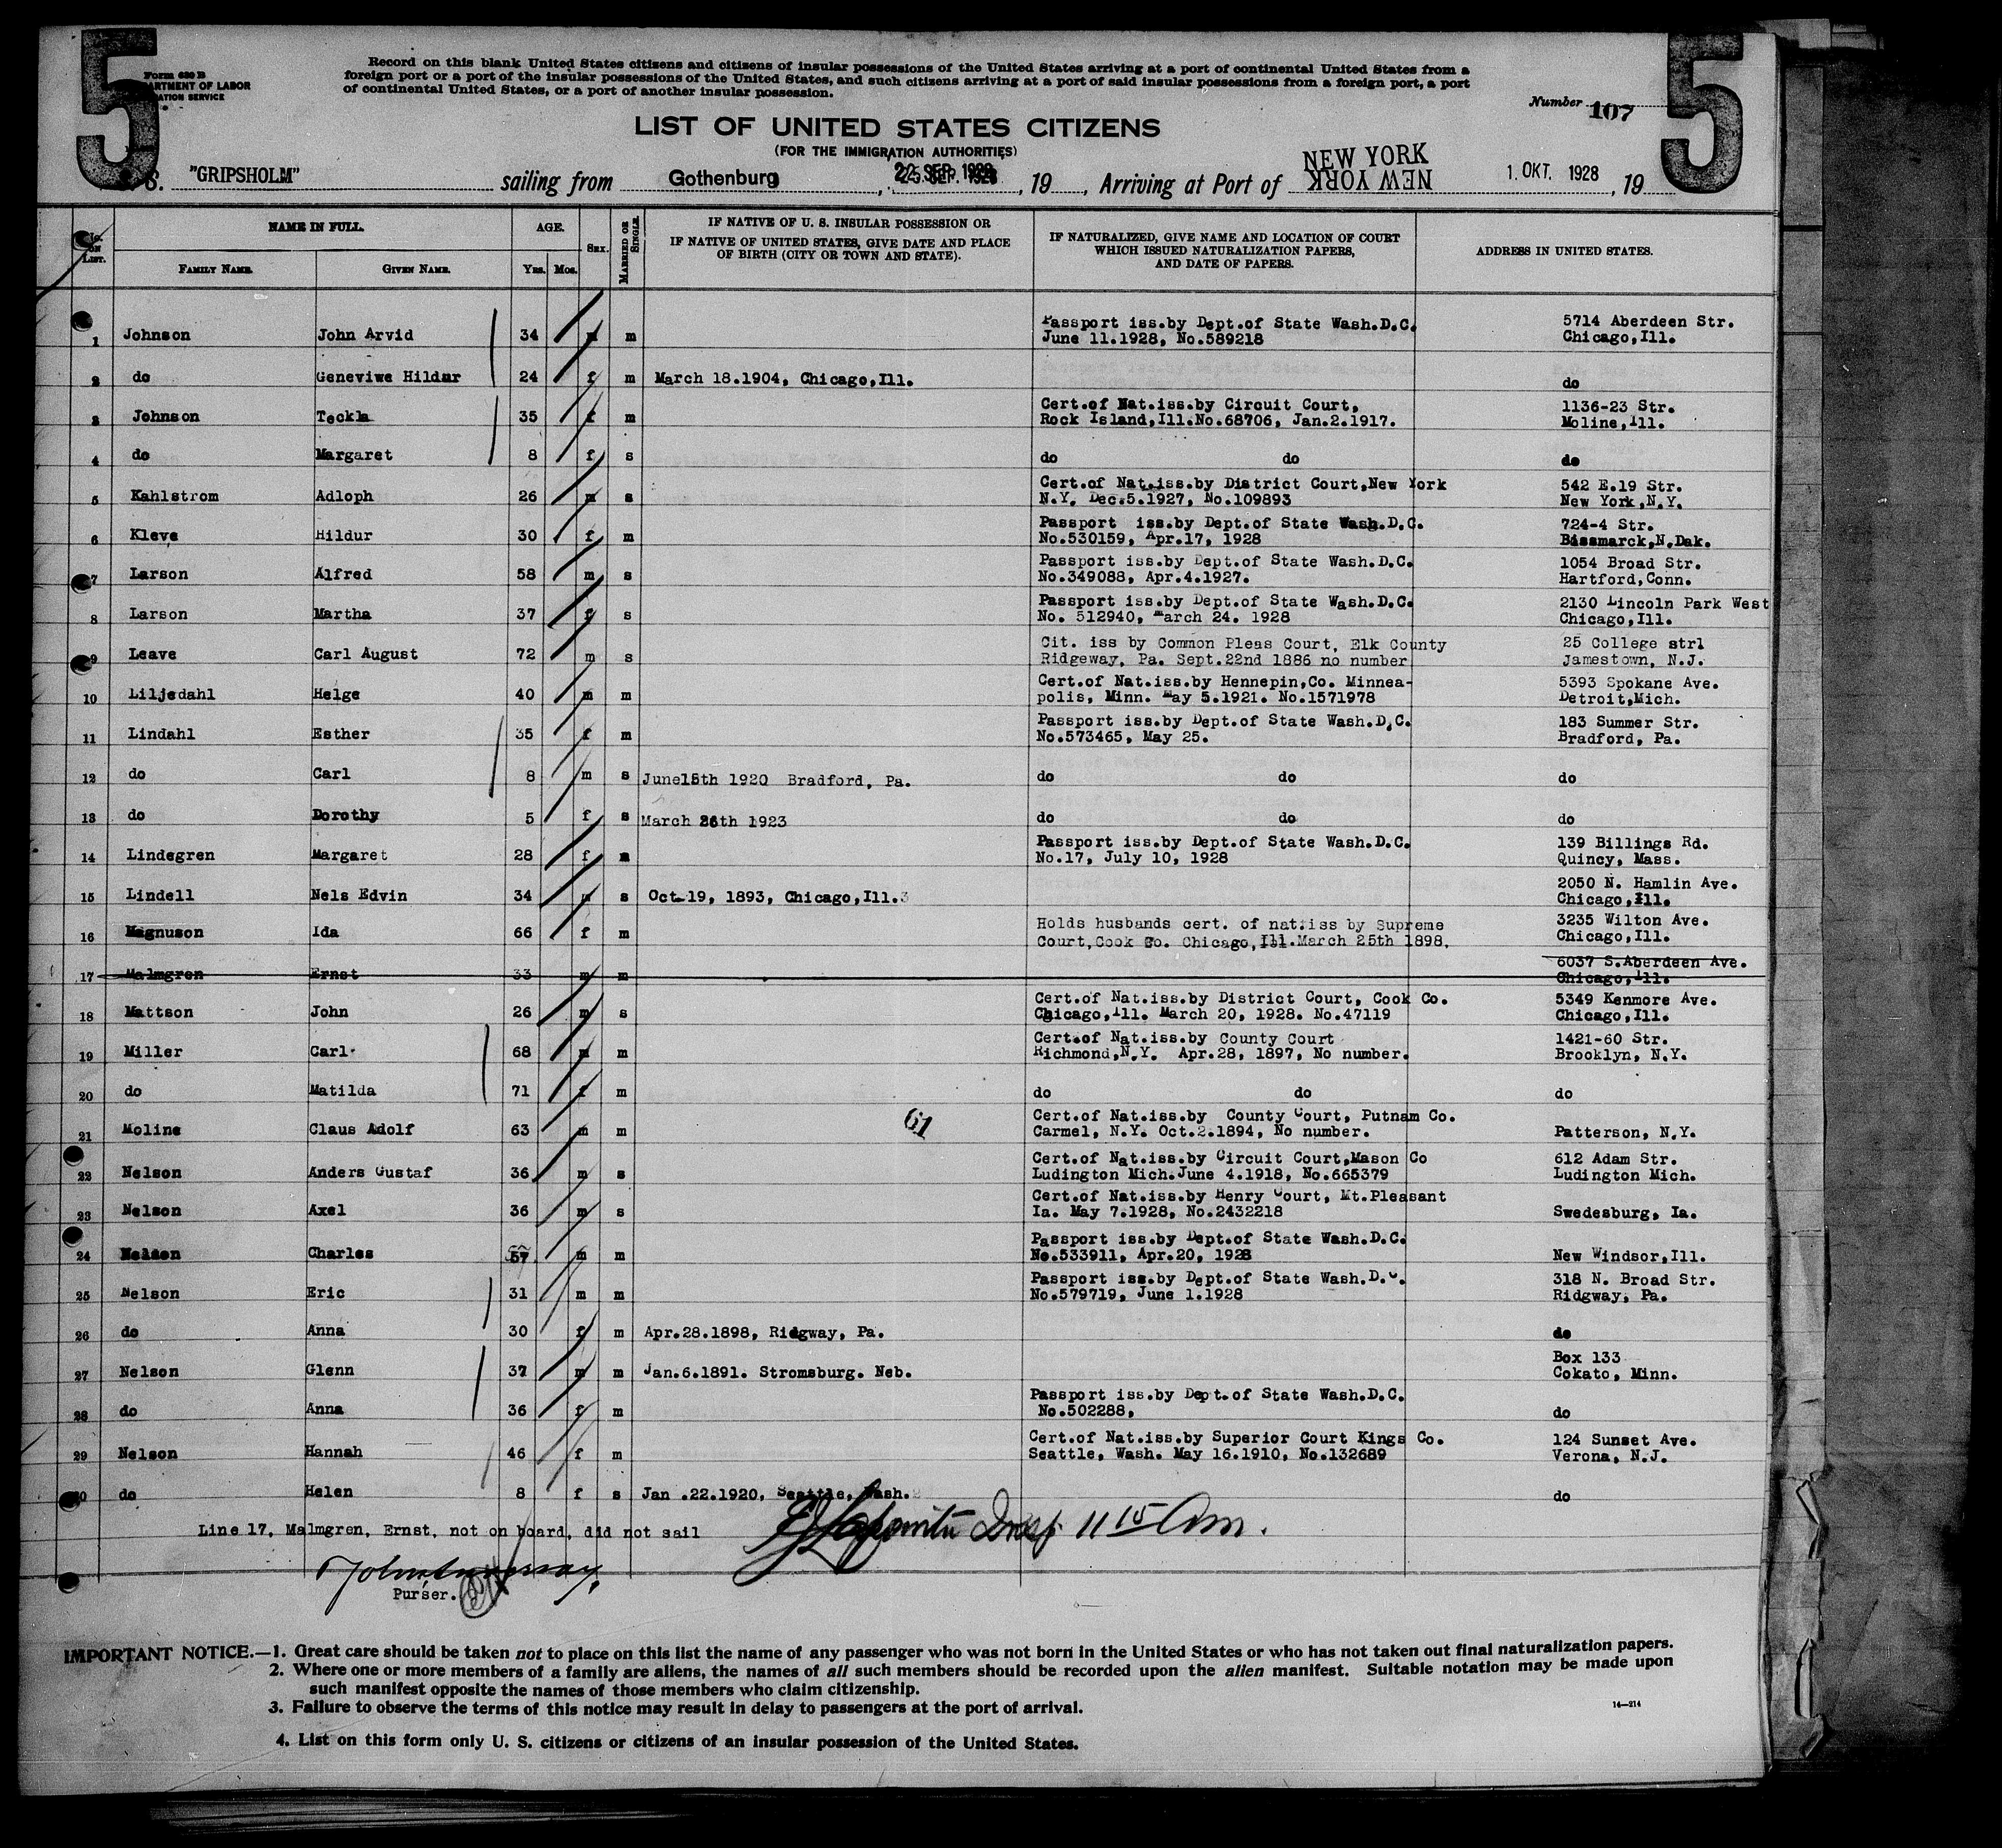 5
5
Form 630 B
ARTMENT OF LABOR
ATION SERVICE
Record on this blank United States citizens and citizens of insular possessions of the United States arriving at a port of continental United States from a
foreign port or a port of the insular possessions of the United States, and such citizens arriving at a port of said insular possessions from a foreign port, a port
of continental United States, or a port of another insular possession.
Number 107
LIST OF UNITED STATES CITIZENS
(FOR THE IMMIGRATION AUTHORITIES)
S. "GRIPSHOLM" sailing from Gothenburg, SEP. 1928, 19 , Arriving at Port of NEW YORK NEW YORK 1. OKT. 1928, 19
No. ON LIST. NAME IN FULL. AGE. SEX. MARRIED OR SINGLE. IF NATIVE OF U. S. INSULAR POSSESSION OR
IF NATIVE OF UNITED STATES, GIVE DATE AND PLACE OF BIRTH (CITY OR TOWN AND STATE).
IF NATURALIZED, GIVE NAME AND LOCATION OF COURT WHICH ISSUED NATURALIZATION PAPERS, AND DATE OF PAPERS.
ADDRESS IN UNITED STATES.
FAMILY NAME. GIVEN NAME. Yrs. Mos.
1 Johnson John Arvid 34 m m Passport iss.by Dept.of State Wash.D.C. 5714 Aberdeen Str.
June 11.1928, No.589218 Chicago,Ill.
2 do Geneviwe Hildur 24 f m March 18.1904, Chicago,Ill. do
3 Johnson Teckla 35 f m Cert.of Nat.iss.by Circuit Court, 1136-23 Str.
Rock Island,Ill.No.68706, Jan.2.1917. Moline,Ill.
4 do Margaret 8 f s do do do
5 Kahlstrom Adloph 26 m s Cert.of Nat.iss.by District Court,New York 542 E.19 Str.
N.Y. Dec.5.1927, No.109893 New York,N.Y.
6 Kleve Hildur 30 f m Passport iss.by Dept.of State Wash.D.C. 724-4 Str.
No.530159, Apr.17, 1928 Bissmarck,N.Dak.
7 Larson Alfred 58 m s Passport iss.by Dept.of State Wash.D.C. 1054 Broad Str.
No.349088, Apr.4.1927. Hartford,Conn.
8 Larson Martha 37 f s Passport iss.by Dept.of State Wash.D.C. 2130 Lincoln Park West
No. 512940, March 24. 1928 Chicago,Ill.
9 Leave Carl August 72 m s Cit. iss by Common Pleas Court, Elk County 25 College strl
Ridgeway, Pa. Sept.22nd 1886 no number Jamestown, N.J.
10 Liljedahl Helge 40 m m Cert.of Nat.iss.by Hennepin,Co. Minnea- 5393 Spokane Ave.
polis, Minn. May 5.1921. No.1571978 Detroit,Mich.
11 Lindahl Esther 35 f m Passport iss.by Dept.of State Wash.D.C. 183 Summer Str.
No.573465, May 25. Bradford, Pa.
12 do Carl 8 m s June15th 1920 Bradford, Pa. do do do
13 do Dorothy 5 f s March 26th 1923 do do do
14 Lindegren Margaret 28 f Passport iss.by Dept.of State Wash.D.C. 139 Billings Rd.
No.17, July 10, 1928 Quincy, Mass.
15 Lindell Nels Edvin 34 m s Oct.19, 1893, Chicago,Ill. 2050 N. Hamlin Ave.
Chicago,Ill.
16 Magnuson Ida 66 f m Holds husbands cert. of nat.iss by Supreme 3235 Wilton Ave.
Court,Cook Co. Chicago,Ill.March 25th 1898. Chicago,Ill.
17 Malmgren Ernst 33 m m 6037 S.Aberdeen Ave.
Chicago,Ill.
18 Mattson John 26 m s Cert.of Nat.iss.by District Court, Cook Co. 5349 Kenmore Ave.
Chicago,Ill. March 20, 1928. No.47119 Chicago,Ill.
19 Miller Carl 68 m m Cert.of Nat.iss.by County Court 1421-60 Str.
Richmond,N.Y. Apr.28, 1897, No number. Brooklyn, N.Y.
20 do Matilda 71 f m do do do
61
21 Moline Claus Adolf 63 m m Cert.of Nat.iss.by County Court, Putnam Co.
Carmel, N.Y. Oct.2.1894, No number. Patterson, N.Y.
22 Nelson Anders Gustaf 36 m s Cert.of Nat.iss.by Circuit Court,Mason Co 612 Adam Str.
Ludington Mich.June 4.1918, No.665379 Ludington Mich.
23 Nelson Axel 36 m s Cert.of Nat.iss.by Henry Court, Mt.Pleasant
Ia. May 7.1928, No.2432218 Swedesburg, Ia.
24 Nelson Charles 57 m m Passport iss.by Dept.of State Wash.D.C.
No.533911, Apr.20, 1928 New Windsor,Ill.
25 Nelson Eric 31 m m Passport iss.by Dept.of State Wash.D.C. 318 N. Broad Str.
No.579719, June 1.1928 Ridgway, Pa.
26 do Anna 30 f m Apr.28.1898, Ridgway, Pa. do
27 Nelson Glenn 37 m m Jan.6.1891. Stromsburg. Neb. Box 133
Cokato, Minn.
28 do Anna 36 f m Passport iss.by Dept.of State Wash.D.C.
No.502288, do
29 Nelson Hannah 46 f m Cert.of Nat.iss.by Superior Court Kings Co. 124 Sunset Ave.
Seattle, Wash. May 16.1910, No.132689 Verona, N.J.
30 do Helen 8 f s Jan .22.1920, Seattle, Wash. do
Line 17, Malmgren, Ernst, not on board, did not sail
Insp. 11 15 Am.
Purser.
IMPORTANT NOTICE.—1. Great care should be taken not to place on this list the name of any passenger who was not born in the United States or who has not taken out final naturalization papers.
2. Where one or more members of a family are aliens, the names of all such members should be recorded upon the alien manifest. Suitable notation may be made upon
such manifest opposite the names of those members who claim citizenship.
3. Failure to observe the terms of this notice may result in delay to passengers at the port of arrival.
14—214
4. List on this form only U. S. citizens or citizens of an insular possession of the United States.